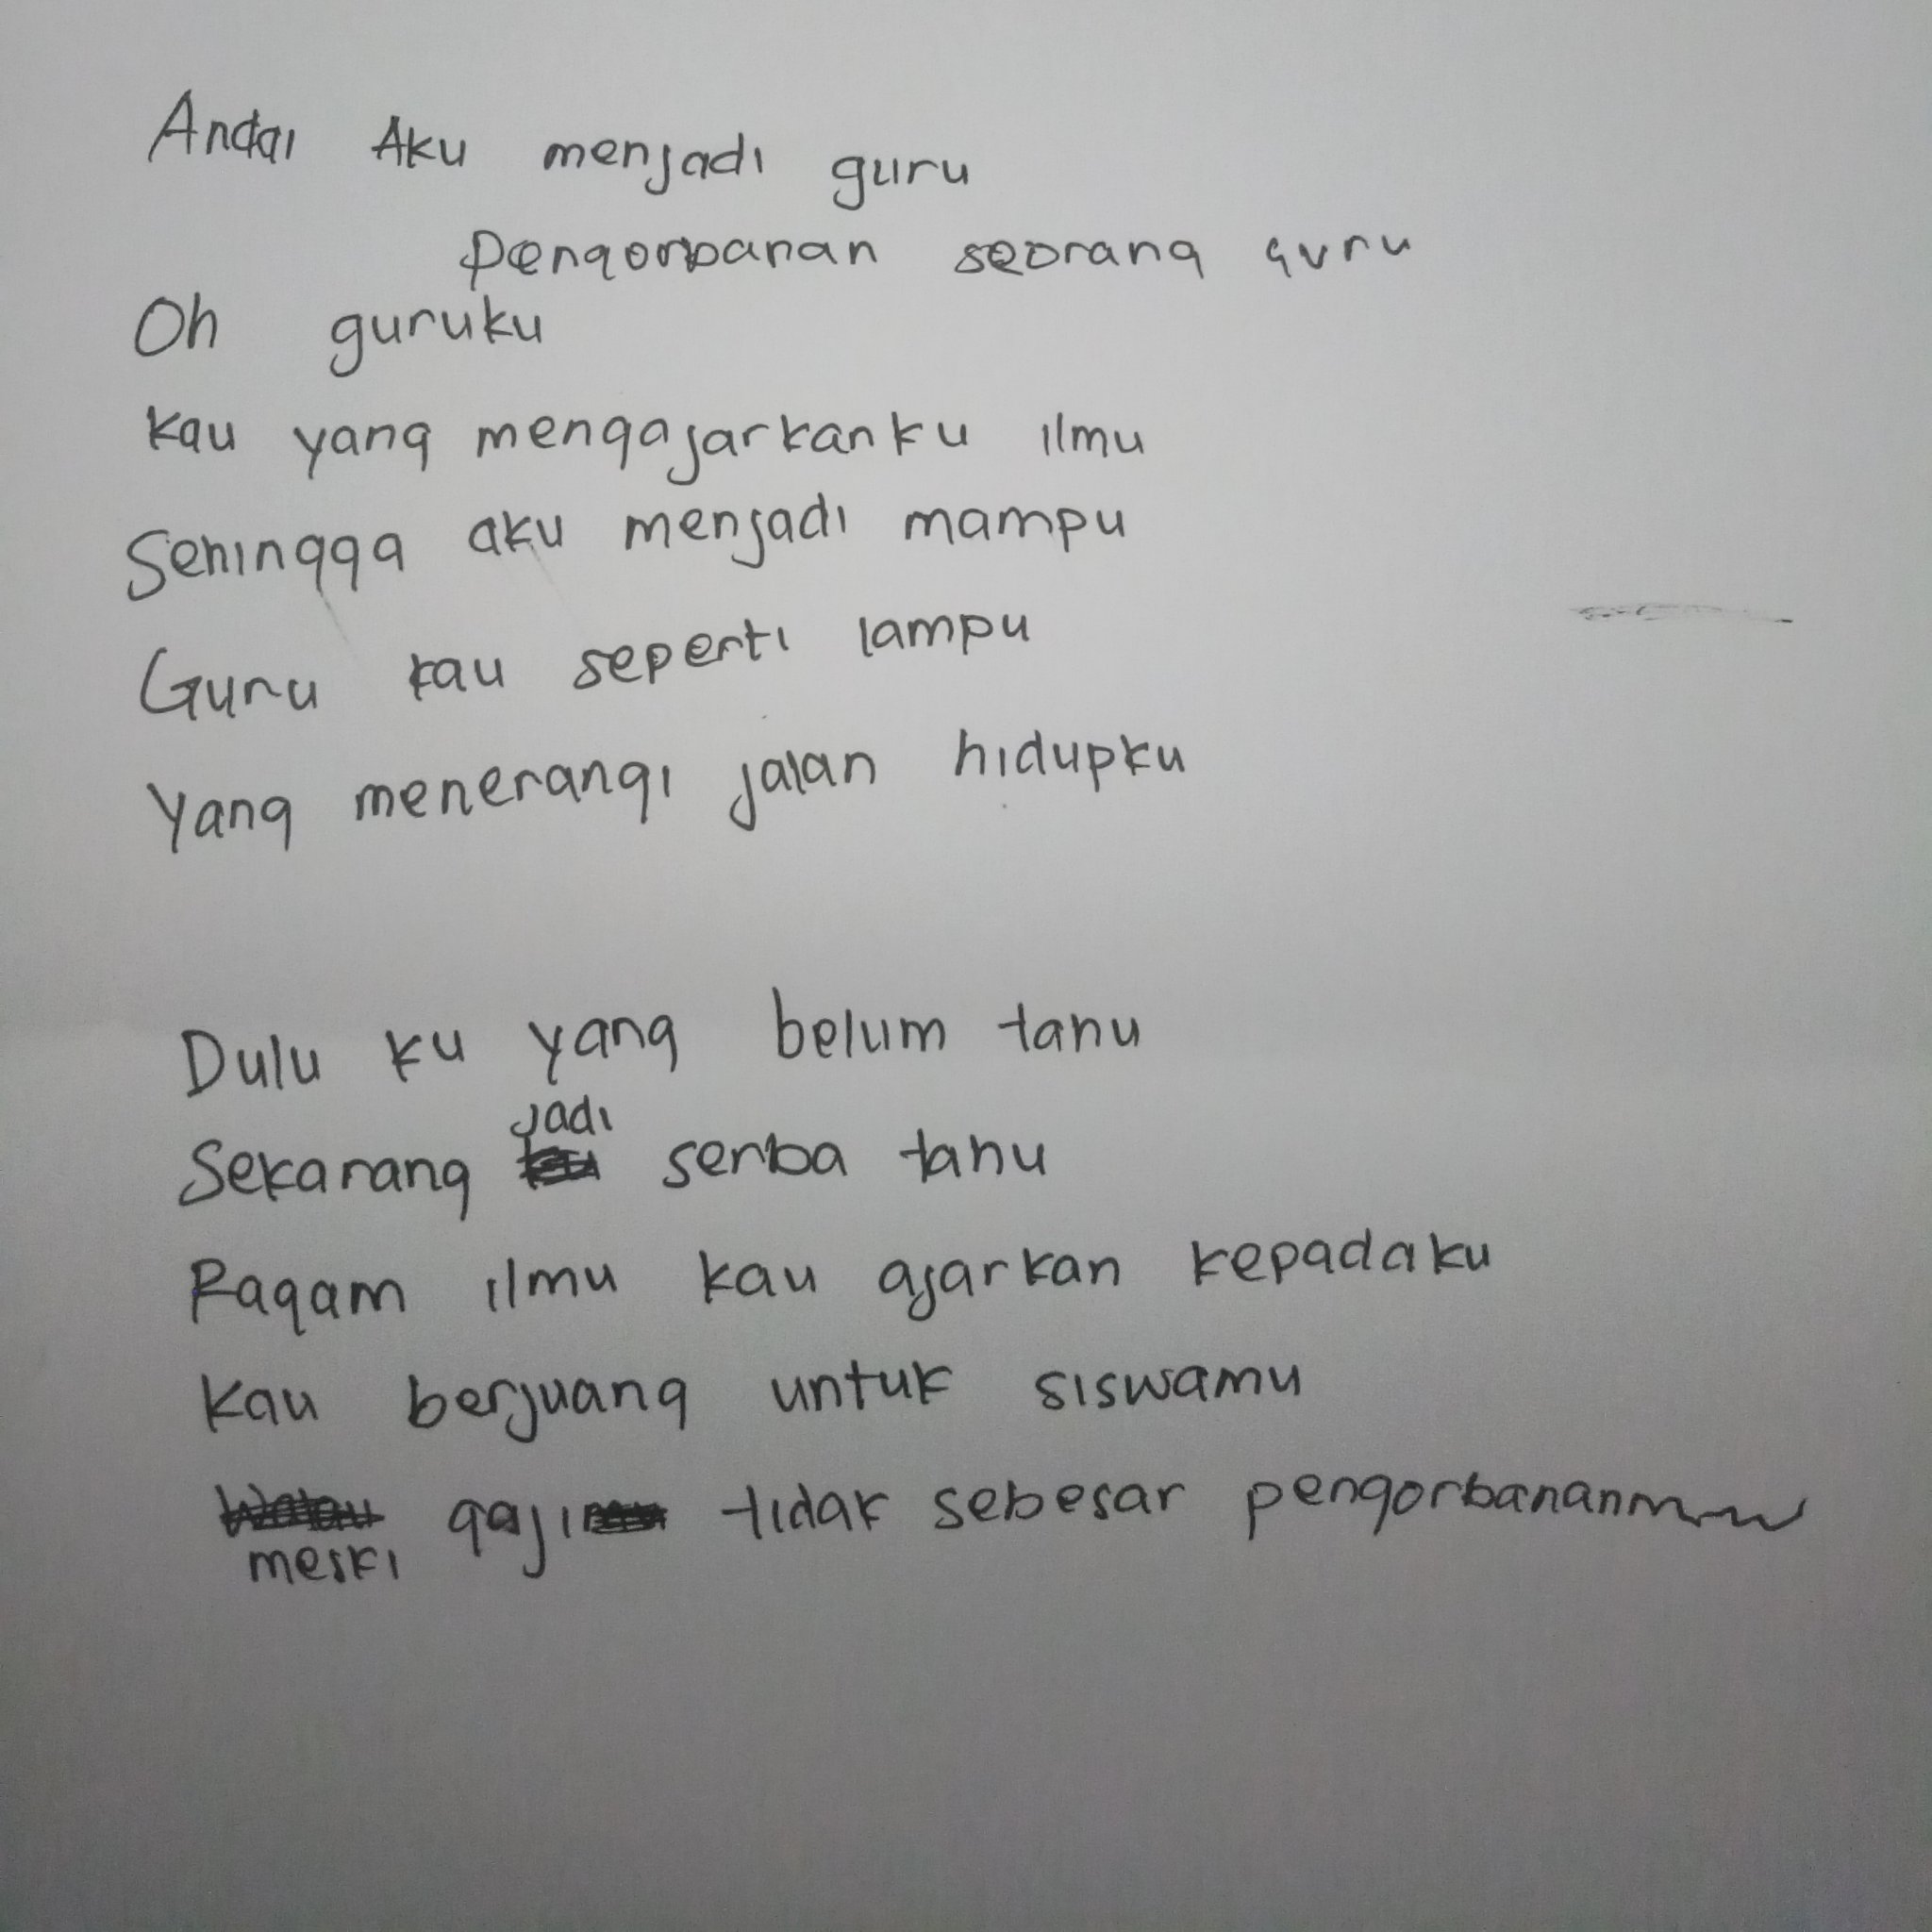 Andai Aku menjadi guru
Pengorbanan seorang guru
Oh guruku
Kau yang mengajarkanku ilmu
Sehingga aku menjadi mampu
Guru kau seperti lampu
Yang menerangi jalan hidupku
Dulu ku yang belum tahu
Sekarang jadi serba tahu
Ragam ilmu kau ajarkan kepadaku
Kau berjuang untuk siswamu
meski gaji tidak sebesar pengorbananmu